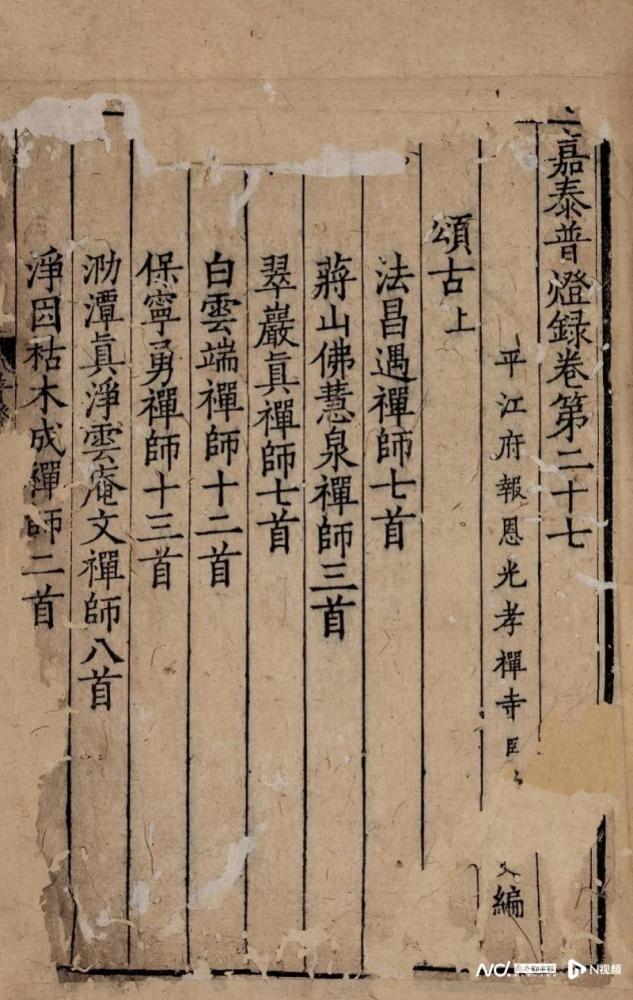 嘉泰普燈録卷第二十七
平江府報恩光孝禪寺臣 編
頌古上
法昌遇禪師七首
蔣山佛慧泉禪師三首
翠巖真禪師七首
白雲端禪師十二首
保寧勇禪師十三首
泐潭真淨雲庵文禪師八首
淨因枯木成禪師二首
N视频